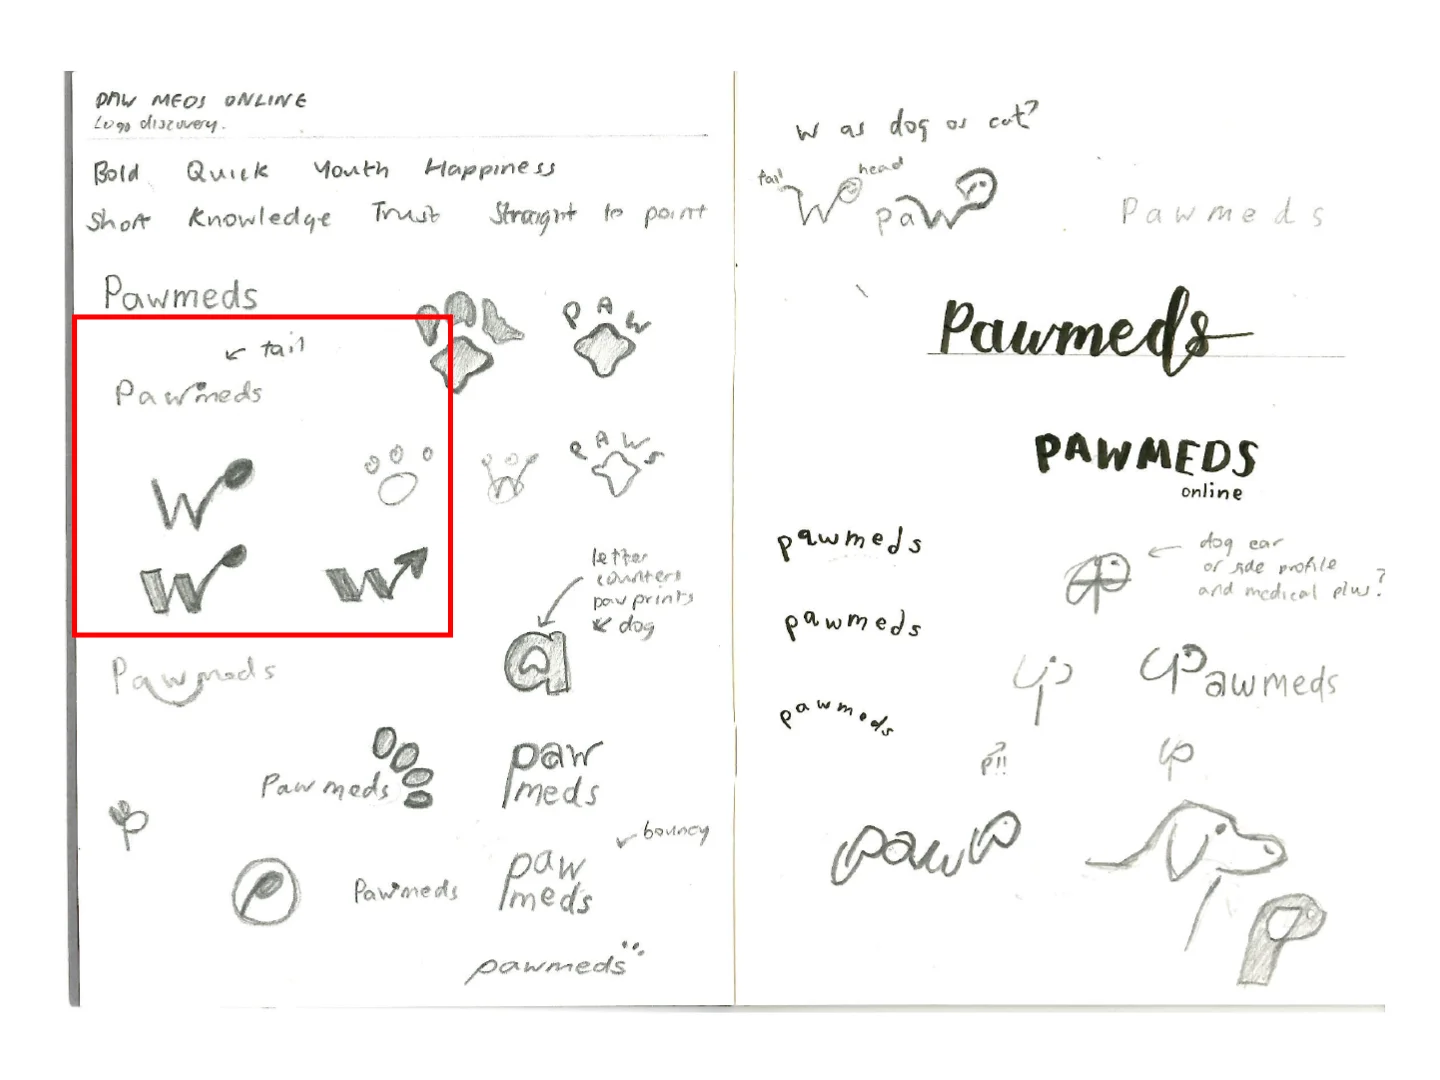 PAW MEDS ONLINE
Logo discovery.
Bold Quick Youth Happiness
Short Knowledge Trust Straight to point
Pawmeds
tail
Pawmeds
W
W
W
PAW
PAWS
letter
counters
paw prints
dog
a
Pawmeds
Paw meds
paw
meds
p
p
Pawmeds
bouncy
paw
meds
pawmeds
W as dog or cat?
tail
head
W
paw
Pawmeds
Pawmeds
PAWMEDS
online
pawmeds
pawmeds
pawmeds
dog ear
or side profile
and medical plus?
Pawmeds
p!!
paw